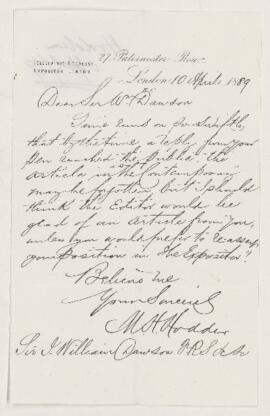 27. Paternoster Row
TELEGRAPHIC ADDRESS:
EXPOSITOR LONDON
London 10 April 1889
Dear Sir Wm Dawson
Time runs on so swiftly
that by the time a reply from your
Pen reached the Public the
Article in the Contemporary
may be forgotten, but I should
think the Editor would be
glad of an Article from you,
unless you would prefer to
your position in the Expositor?
Believe me
Yours Sincerely
M H Hodder
Sir J. William Dawson F.R.S &c &c